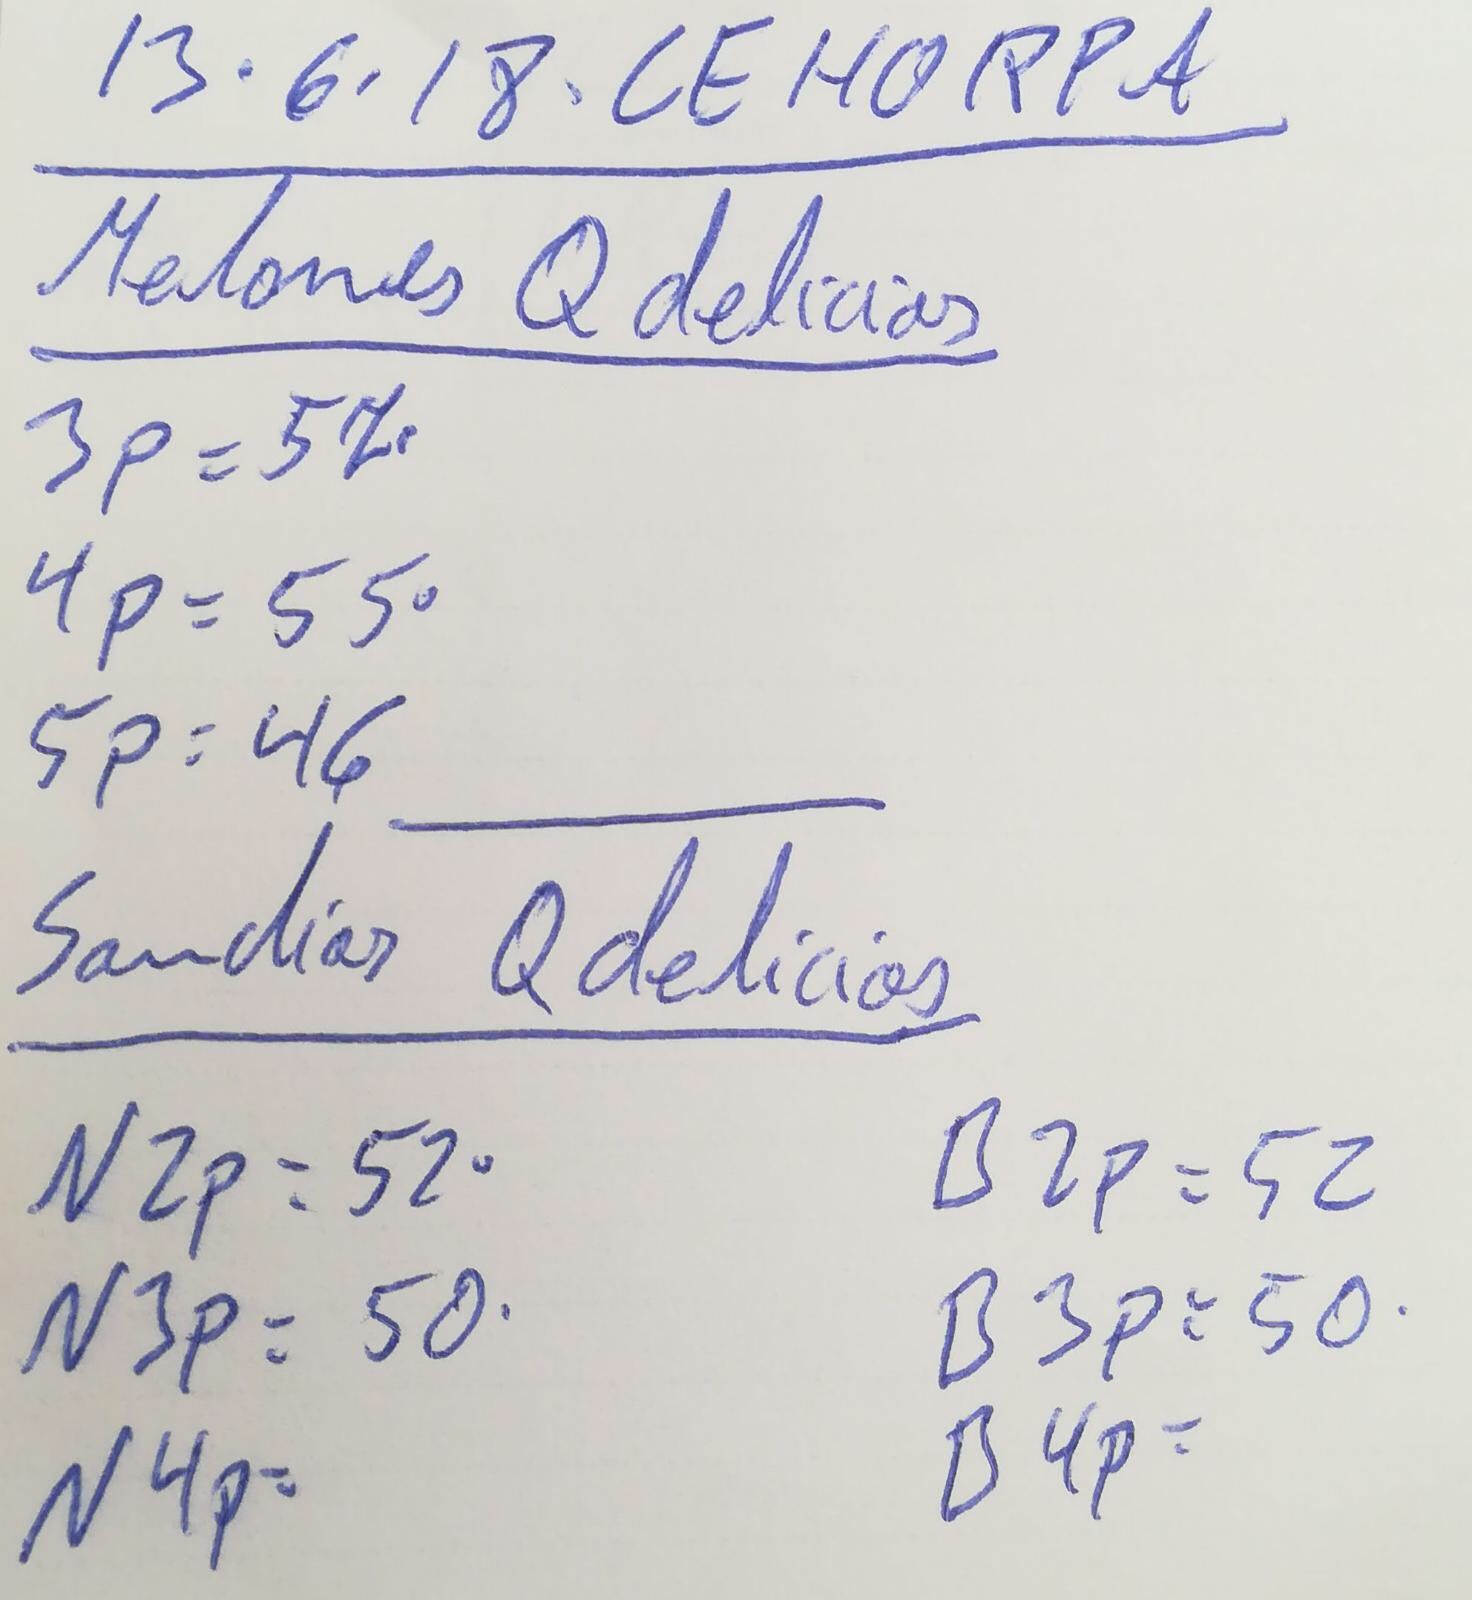 13.6.18. CEHORPA
Melones Qdelicias
3p=57.
4p=55.
5p=46
Sandias Qdelicias
N2p=52. B2p=52
N3p=50. B3p=50.
N4p= B4p=